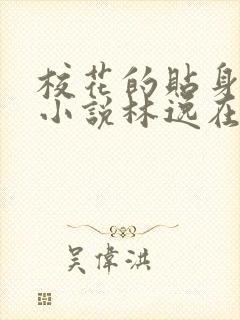 校花的貼身
小說林逸在
吳偉洪